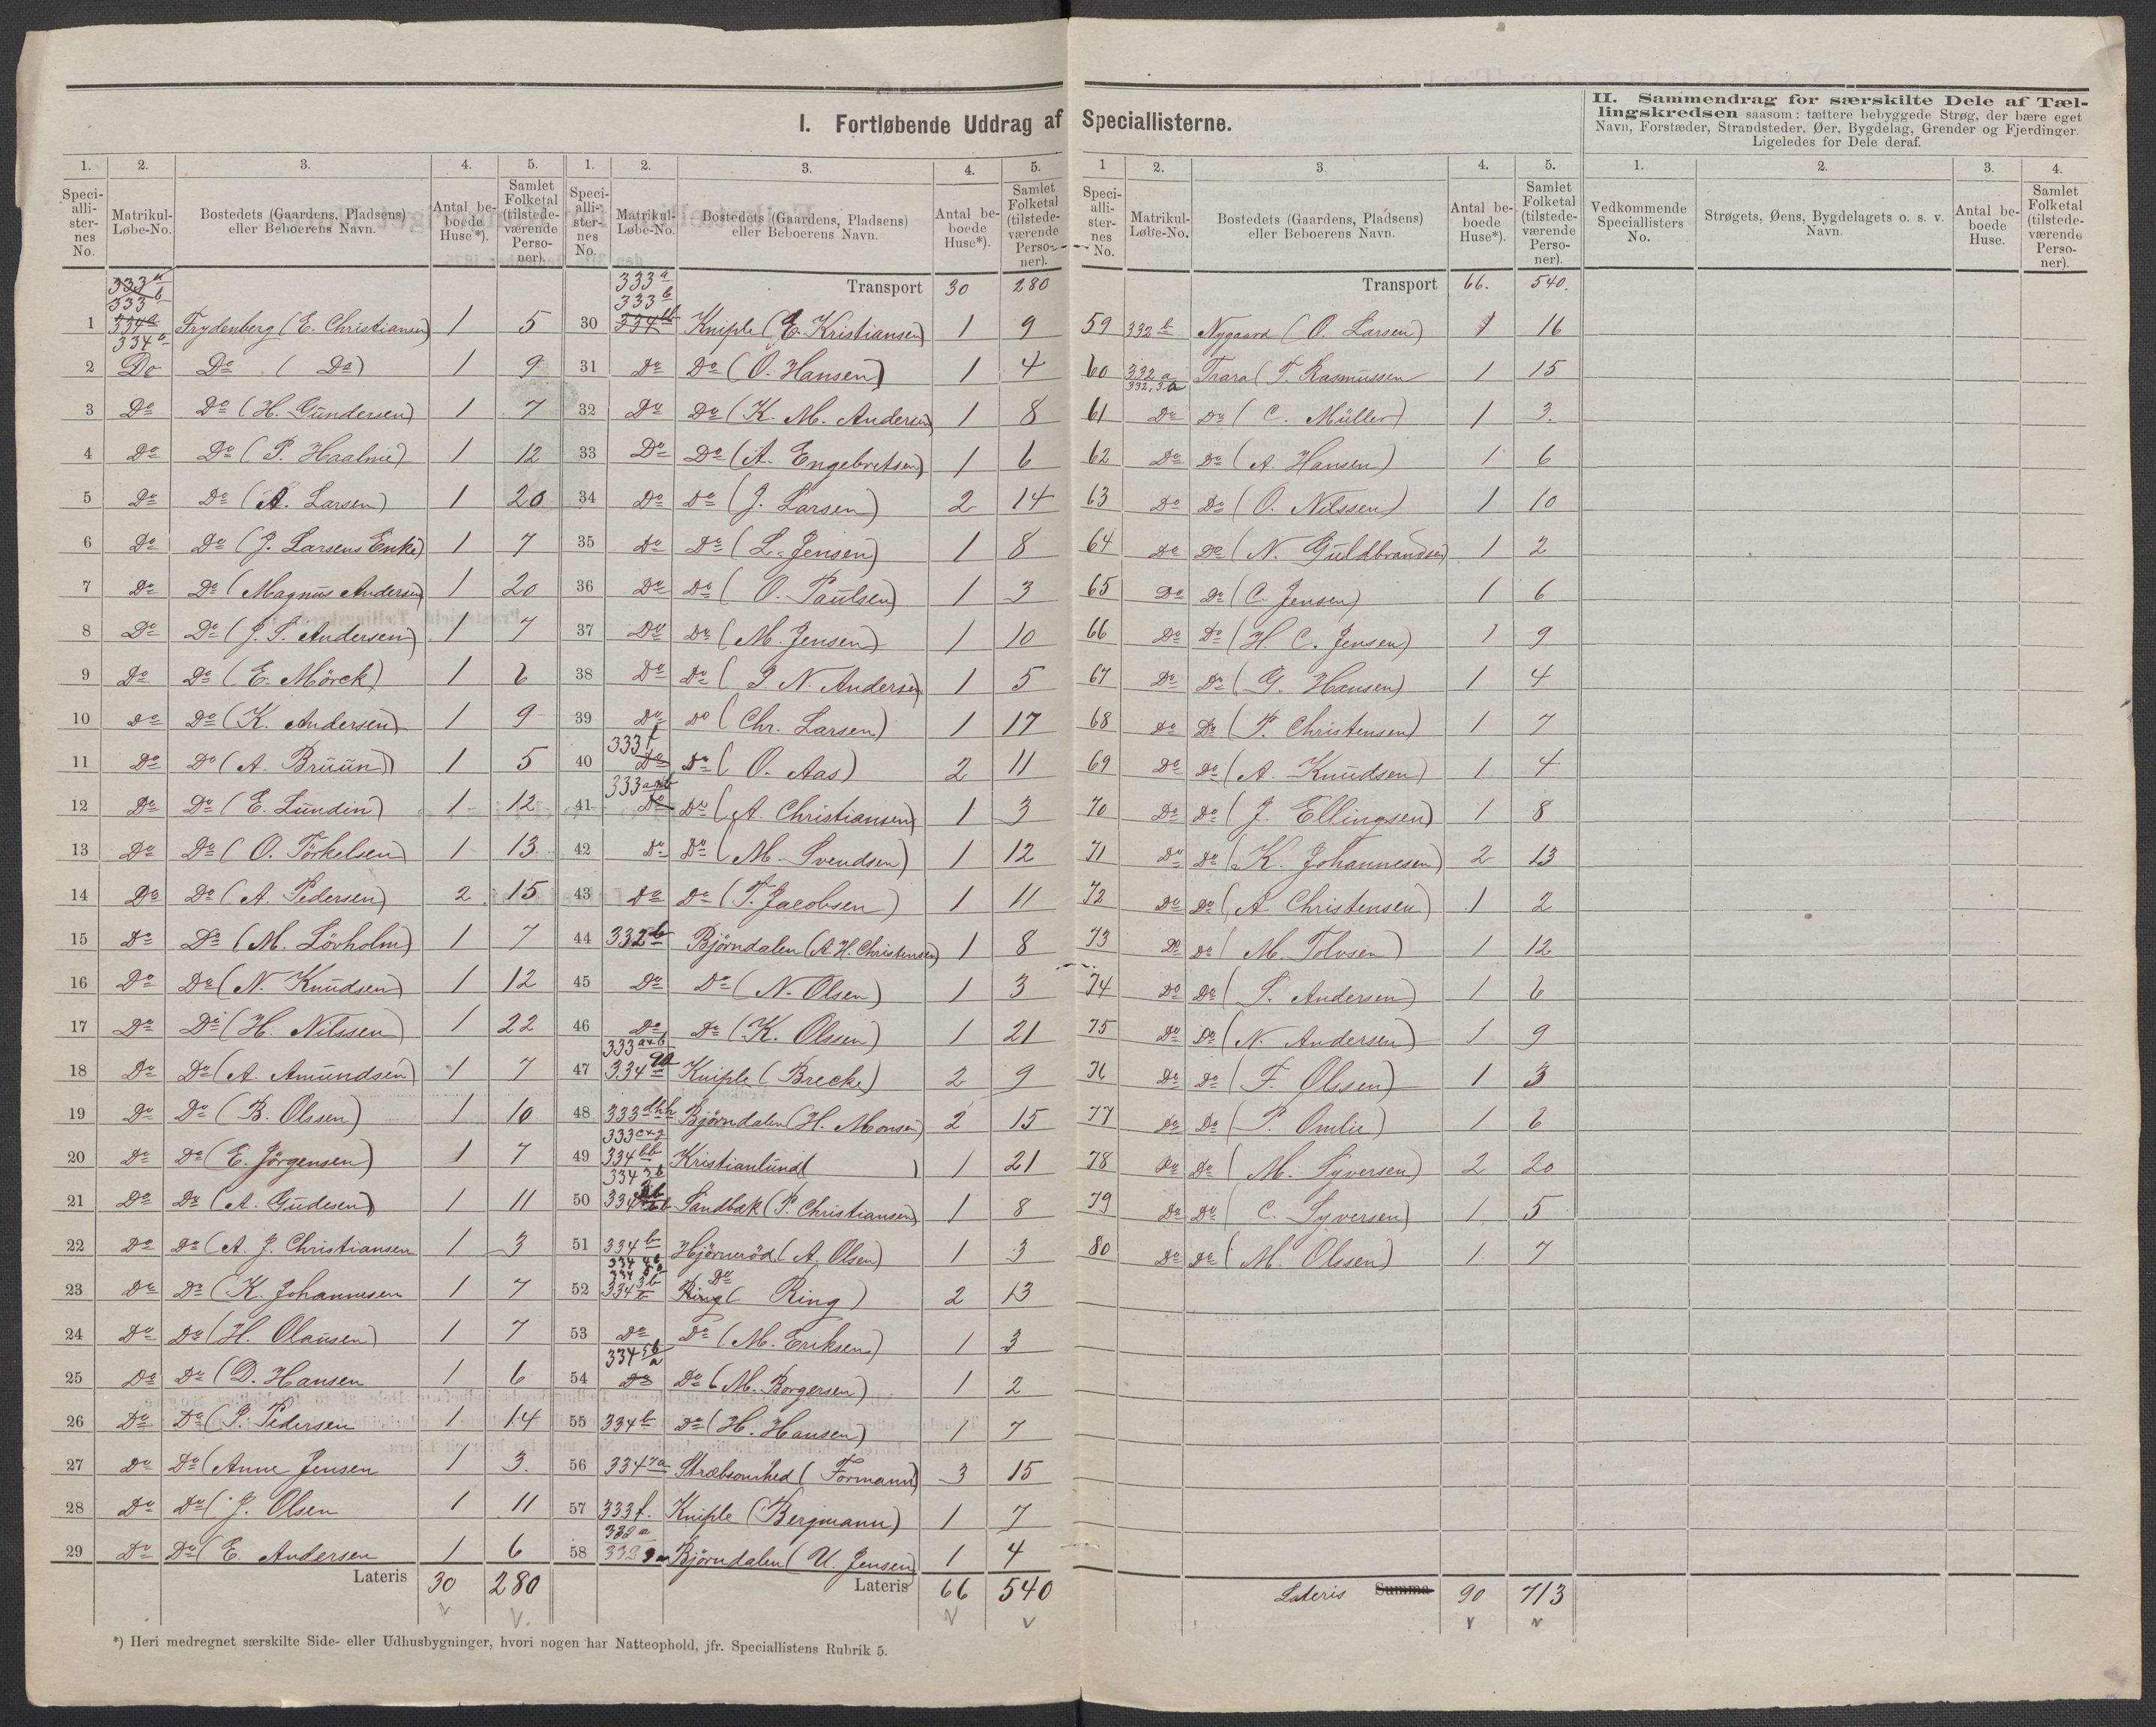 I. Fortløbende Uddrag af Speciallisterne.
II. Sammendrag for særskilte Dele af Tæl-
lingskredsen saasom: tættere bebyggede Strøg, der bære eget
Navn, Forstæder, Strandsteder, Øer, Bygdelag, Grender og Fjerdinger.
Ligeledes for Dele deraf.
1. 2. 3. 4. 5.
Speciallisternes No. Matrikul-Løbe-No. Bostedets (Gaardens, Pladsens) eller Beboerens Navn. Antal beboede Huse*). Samlet Folketal (tilstedeværende Personer).
333a
333b
334a
1 334b Frydenberg (E. Christiansen) 1 5
2 Do Do ( Do) 1 9
3 Do Do (H. Gundersen) 1 7
4 Do Do (P. Haalmie) 1 12
5 Do Do (A. Larsen) 1 20
6 Do Do (J. Larsens Enke) 1 7
7 Do Do (Magnus Andersen) 1 20
8 Do Do (J. S. Andersen) 1 7
9 Do Do (E. Mörck) 1 6
10 Do Do (K. Andersen) 1 9
11 Do Do (A. Bruun) 1 5
12 Do Do (E. Lundin) 1 12
13 Do Do (O. Törkelsen) 1 13
14 Do Do (A. Pedersen) 2 15
15 Do Do (M. Lövholm) 1 7
16 Do Do (N. Knudsen) 1 12
17 Do Do (H. Nilssen) 1 22
18 Do Do (A. Amundsen) 1 7
19 Do Do (B. Olssen) 1 10
20 Do Do (E. Jörgensen) 1 7
21 Do Do (A. Gudesen) 1 11
22 Do Do (A. J. Christiansen 1 3
23 Do Do (K. Johannesen 1 7
24 Do Do (H. Olausen) 1 7
25 Do Do (D. Hansen 1 6
26 Do Do (P. Pedersen 1 14
27 Do Do (Anne Jensen 1 3.
28 Do Do (J. Olsen 1 11
29 Do Do (E. Andersen 1 6
Lateris 30 280
*) Heri medregnet særskilte Side- eller Udhusbygninger, hvori nogen har Natteophold, jfr. Speciallistens Rubrik 5.
1. 2. 3. 4. 5.
Speciallisternes No. Matrikul-Løbe-No. Bostedets (Gaardens, Pladsens) eller Beboerens Navn. Antal beboede Huse*). Samlet Folketal (tilstedeværende Personer).
333a
333b
Transport 30 280
30 Kniple (E. Kristiansen) 1 9
31 Do Do (O. Hansen) 1 4
32 Do Do (K. M. Andersen) 1 8
33 Do Do (A. Engebretsen) 1 6
34 Do Do (J. Larsen) 2 14
35 Do Do (L. Jensen) 1 8
36 Do Do (O. Paulsen) 1 3
37 Do Do (M. Jensen) 1 10
38 Do Do (P. N. Andersen) 1 5
39 Do Do (Chr. Larsen) 1 17
333f
40 Do Do (O. Aas) 2 11
333a+b
41 Do Do (A. Christiansen) 1 3
42 Do Do (M. Svendsen) 1 12
43 Do Do (T. Jacobsen) 1 11
44 332b Bjørndalen (A. H. Christensen) 1 8
45 Do Do (N. Olsen) 1 3
46 Do Do (K. Olssen) 1 21
333a+b
47 334 Kniple (Brecke) 2 9
48 333 Bjørndalen (H. Monsen) 2 15
49 334 Kristianlund ( ) 1 21
50 334 Sandbæk (P. Christiansen) 1 8
51 334b Hjörneröd (A. Olsen) 1 3
Do
52 334 Ring ( Ring) 2 13
53 Do Do (M. Eriksen) 1 3
54 Do Do (M. Borgersen) 1 2
55 334b Do (H. Hansen) 1 7
56 334 7a Stræbsomhed (Formann) 3 15
57 333f. Kniple (Bergmann) 1 7
332a
58 332 Bjørndalen (U. Jensen) 1 4
Lateris 66 540
1 2. 3. 4. 5.
Speciallisternes No. Matrikul-Løbe-No. Bostedets (Gaardens, Pladsens) eller Beboerens Navn. Antal beboede Huse*). Samlet Folketal (tilstedeværende Personer).
Transport 66. 540.
59 332b Nygaard (O. Larsen) 1 16
60 332a Trara (T. Rasmussen 1 15
61 Do Do (C. Müller) 1 3.
62 Do Do (A. Hansen) 1 6
63 Do Do (O. Nilssen) 1 10
64 Do Do (N. Guldbrandsen) 1 2
65 Do Do (C. Jensen) 1 6
66 Do Do (H. C. Jensen) 1 9
67 Do Do (G. Hansen) 1 4
68 Do Do (P. Christensen) 1 7
69 Do Do (A. Knudsen) 1 4
70 Do Do (J. Ellingsen) 1 8
71 Do Do (K. Johannesen) 2 13
72 Do Do (A. Christensen) 1 2
73 Do Do (M. Tolvsen) 1 12
74 Do Do (S. Andersen) 1 6
75 Do Do (N. Andersen) 1 9
76 Do Do (F. Olssen) 1 3
77 Do Do (P. Omlie) 1 6
78 Do Do (M. Syversen) 2 20
79 Do Do (C. Syversen) 1 5
80 Do Do (M. Olssen) 1 7
Lateris Summa 90 713
1. 2. 3. 4.
Vedkommende Speciallisters No. Strøgets, Øens, Bygdelagets o. s. v. Navn. Antal beboede Huse. Samlet Folketal (tilstedeværende Personer).